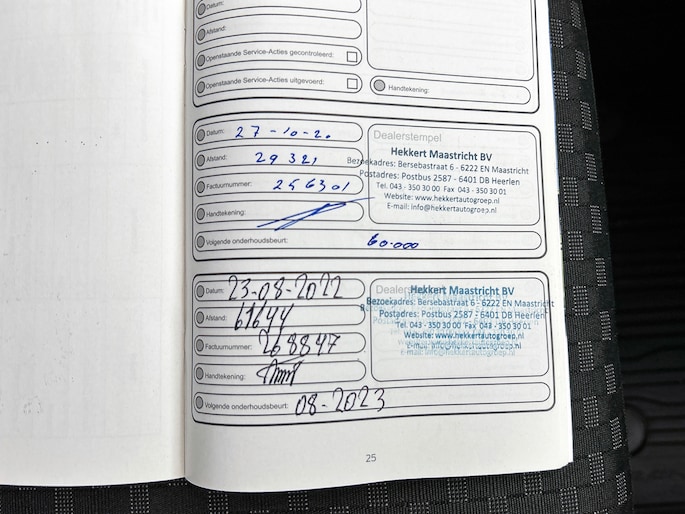 Datum:
Afstand:
Openstaande Service-Acties gecontroleerd:
Openstaande Service-Acties uitgevoerd:
Handtekening:
Datum: 27-10-20
Dealerstempel
Hekkert Maastricht BV
Afstand: 29 321
Bezoekadres: Bersebastraat 6 - 6222 EN Maastricht
Postadres: Postbus 2587 - 6401 DB Heerlen
Factuurnummer: 256301
Tel. 043 - 350 30 00 Fax 043 - 350 30 01
Website: www.hekkertautogroep.nl
E-mail: info@hekkertautogroep.nl
Handtekening:
Volgende onderhoudsbeurt: 60.000
Datum: 23-08-2022
Hekkert Maastricht BV
Bezoekadres: Bersebastraat 6 - 6222 EN Maastricht
Afstand: 61644
Postadres: Postbus 2587 - 6401 DB Heerlen
Tel. 043 - 350 30 00 Fax 043 - 350 30 01
Website: www.hekkertautogroep.nl
Factuurnummer: 268847
E-mail: info@hekkertautogroep.nl
Handtekening:
Volgende onderhoudsbeurt: 08-2023
25